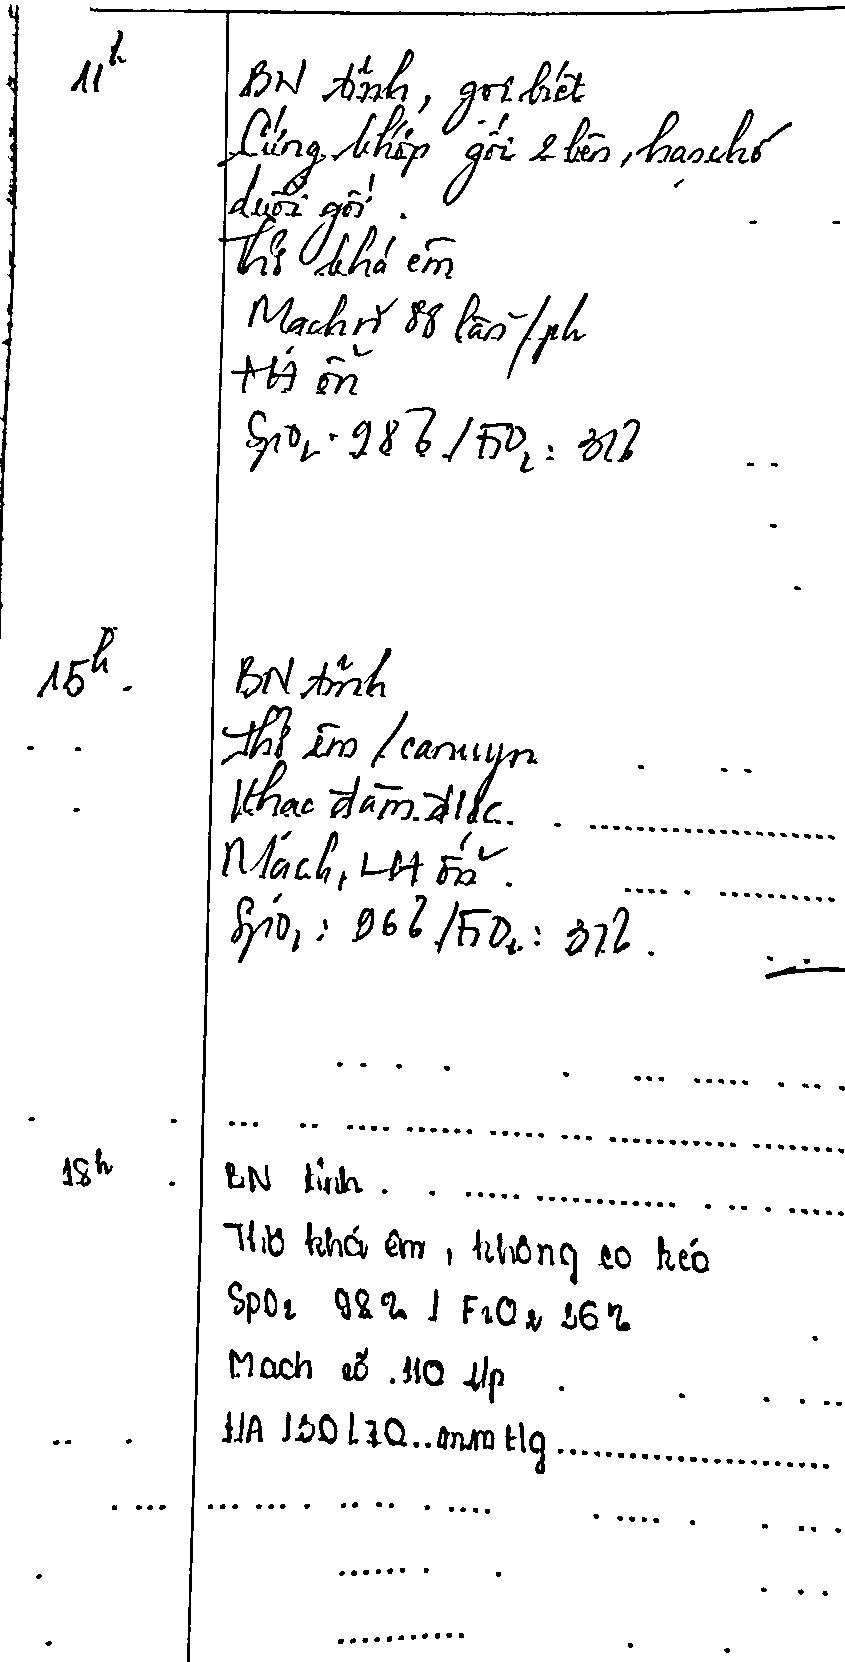 11h
BN tỉnh, gọi biết
Cứng khớp gối 2 bên, hạn chế
duỗi gối.
Thở khá êm
Mạch rõ 88 lần/ph
HA ổn
SpO2: 98% / FiO2: 31%
15h.
BN tỉnh
Thở êm / canuyn
Khạc đàm đục.
Mạch, HA ổn.
SpO2: 96% / FiO2: 31%.
18h
BN tỉnh.
Thở khá êm, không co kéo
SpO2 98% / FiO2 36%
Mạch rõ 110 l/p
HA 130/70 mmHg